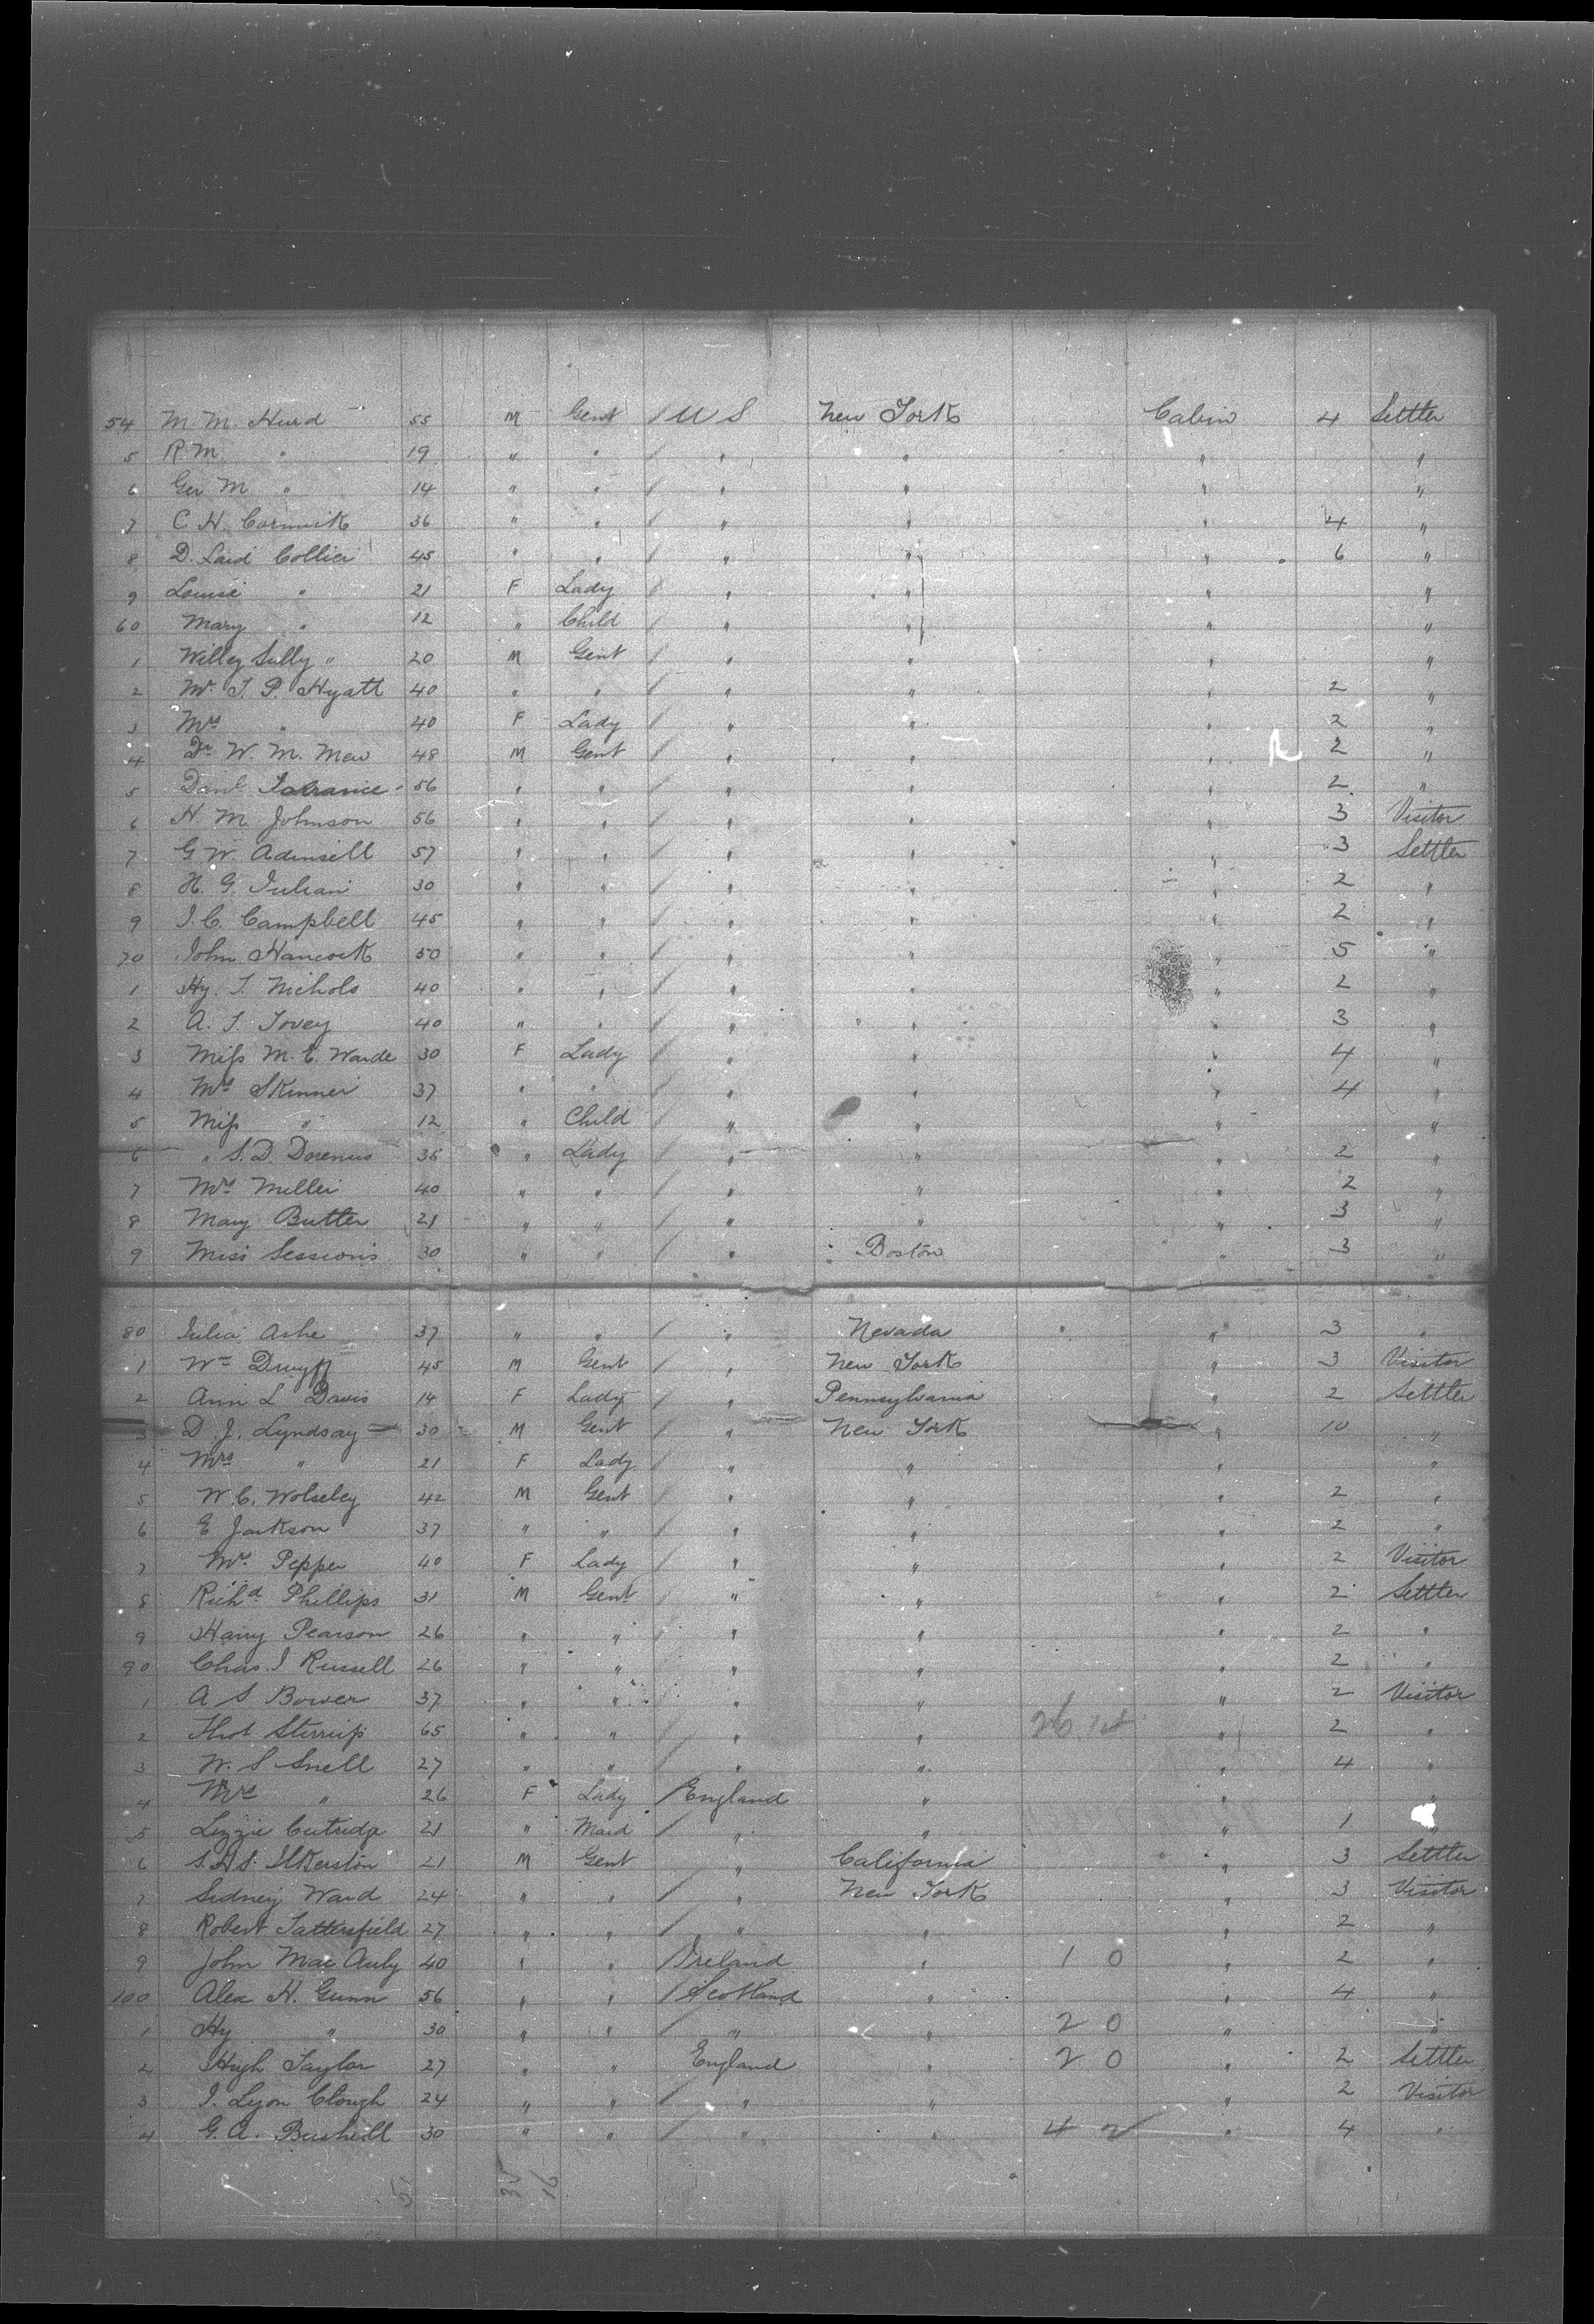 54 M M. Hurd 55 M Gent / U S New York Cabin 4 Settler
5 R. M. " 19 " " / " " " "
6 Geo M " 14 " " / " " " "
7 C. H. Cormick 36 " " / " " " 4 "
8 D. Laid Collier 45 " " / " " " 6 "
9 Louise " 21 F Lady / " " " "
60 Mary " 12 " Child / " " " "
1 Willey Sully " 20 M Gent / " " " "
2 Mr. T. P. Hyatt 40 " " / " " " 2 "
3 Mrs " 40 F Lady / " " " 2 "
4 Dr W. M. Mew 48 M Gent / " " " 2 "
5 Danl 56 " " / " " " 2 "
6 H. M. Johnson 56 " " / " " " 3 Visitor
7 G. W. Adinsell 57 " " / " " " 3 Settler
8 H. G. Julian 30 " " / " " " 2 "
9 J. C. Campbell 45 " " / " " " 2 "
70 John Hancock 50 " " / " " " 5 "
1 Hy. T. Nichols 40 " " / " " " 2 "
2 A. T. Tovey 40 " " / " " " 3 "
3 Miss M. E. Warde 30 F Lady / " " " 4 "
4 Mrs Skinner 37 " " / " " " 4 "
5 Miss " 12 " Child / " " " "
6 " S. D. Doremus 35 " Lady / " " " 2 "
7 Mrs Miller 40 " " / " " " 2 "
8 Mary Butler 21 " " / " " " 3 "
9 Miss Sessions 30 " " / " Boston " 3 "
80 Julia Ashe 37 " " / " Nevada " 3 "
1 Wm 45 M Gent / " New York " 3 Visitor
2 Ann L Davis 14 F Lady / " Pennsylvania " 2 Settler
3 D. J. Lyndsay 30 M Gent / " New York " 10 "
4 Mrs " 21 F Lady / " " " "
5 W. C. Wolseley 42 M Gent / " " " 2 "
6 E Jackson 37 " " / " " " 2 "
7 Mrs. Pepper 40 F Lady / " " " 2 Visitor
8 Richd Phillips 31 M Gent / " " " 2 Settler
9 Harry Pearson 26 " " / " " " 2 "
90 Chas. J Russell 26 " " / " " " 2 "
1 A S Bower 37 " " / " " " 2 Visitor
2 Thos Stirrup 65 " " / " " 26 " 2 "
3 W. S Snell 27 " " / " " " 4 "
4 Mrs " 26 F Lady / England " " "
5 Lizzie 21 " Maid / " " " 1 "
6 21 M Gent " California " 3 Settler
7 Sidney Ward 24 " " / " New York " 3 Visitor
8 Robert Tattersfield 27 " " / " " " 2 "
9 John Mac Auly 40 " " / Ireland " 1 0 " 2 "
100 Alex H. Gunn 56 " " / Scotland " " 4 "
1 Hy " 30 " " / " " 2 0 " "
2 Hugh Taylor 27 " " England " 2 0 " 2 Settler
3 J. Lyon Clough 24 " " / " " " 2 Visitor
4 G. A. Bushell 30 " " / " " 4 2 " 4 "
35
16